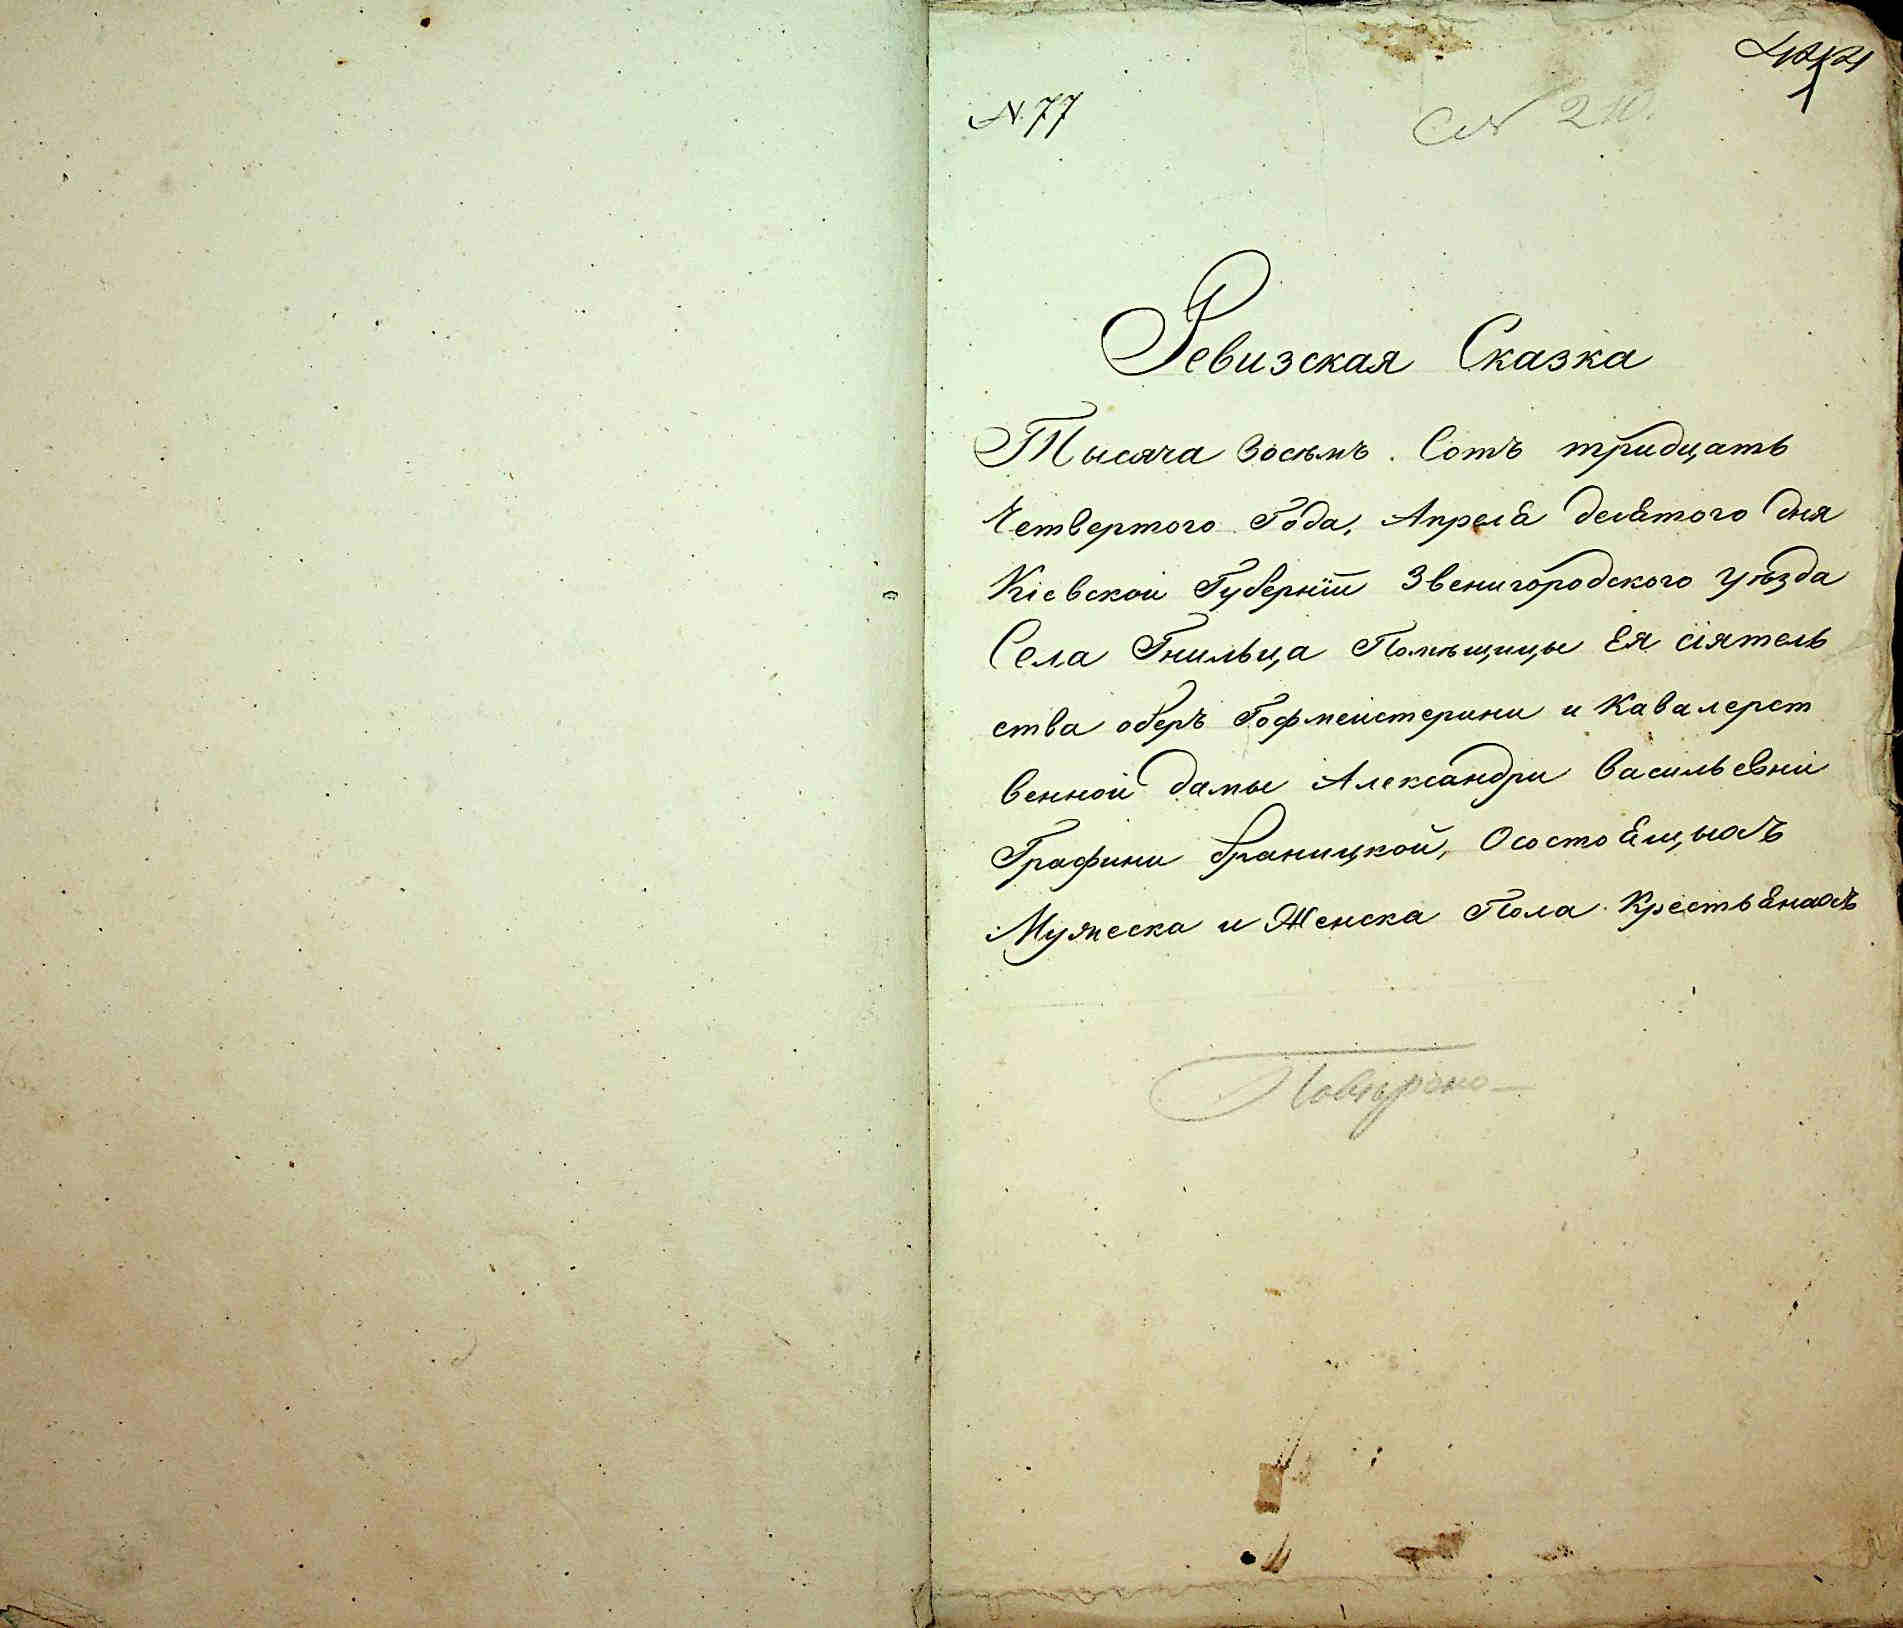 N. 77
N 210.
Ревизская Сказка
Тысяча восѣмъ. Сотъ тридцать
Четвертого Года, Апреля десятого дня
Кіевской Губерніи Звенигородского уѣзда
Села Гнильца Помѣщицы Ея сіятель
ства оберъ Гофмеистерини и Кавалерст
венной дамы Александри Васильевни
Графини браницкой, Осостоящихъ
Мужеска и Женска Пола Крестьянахъ
Повѣрено